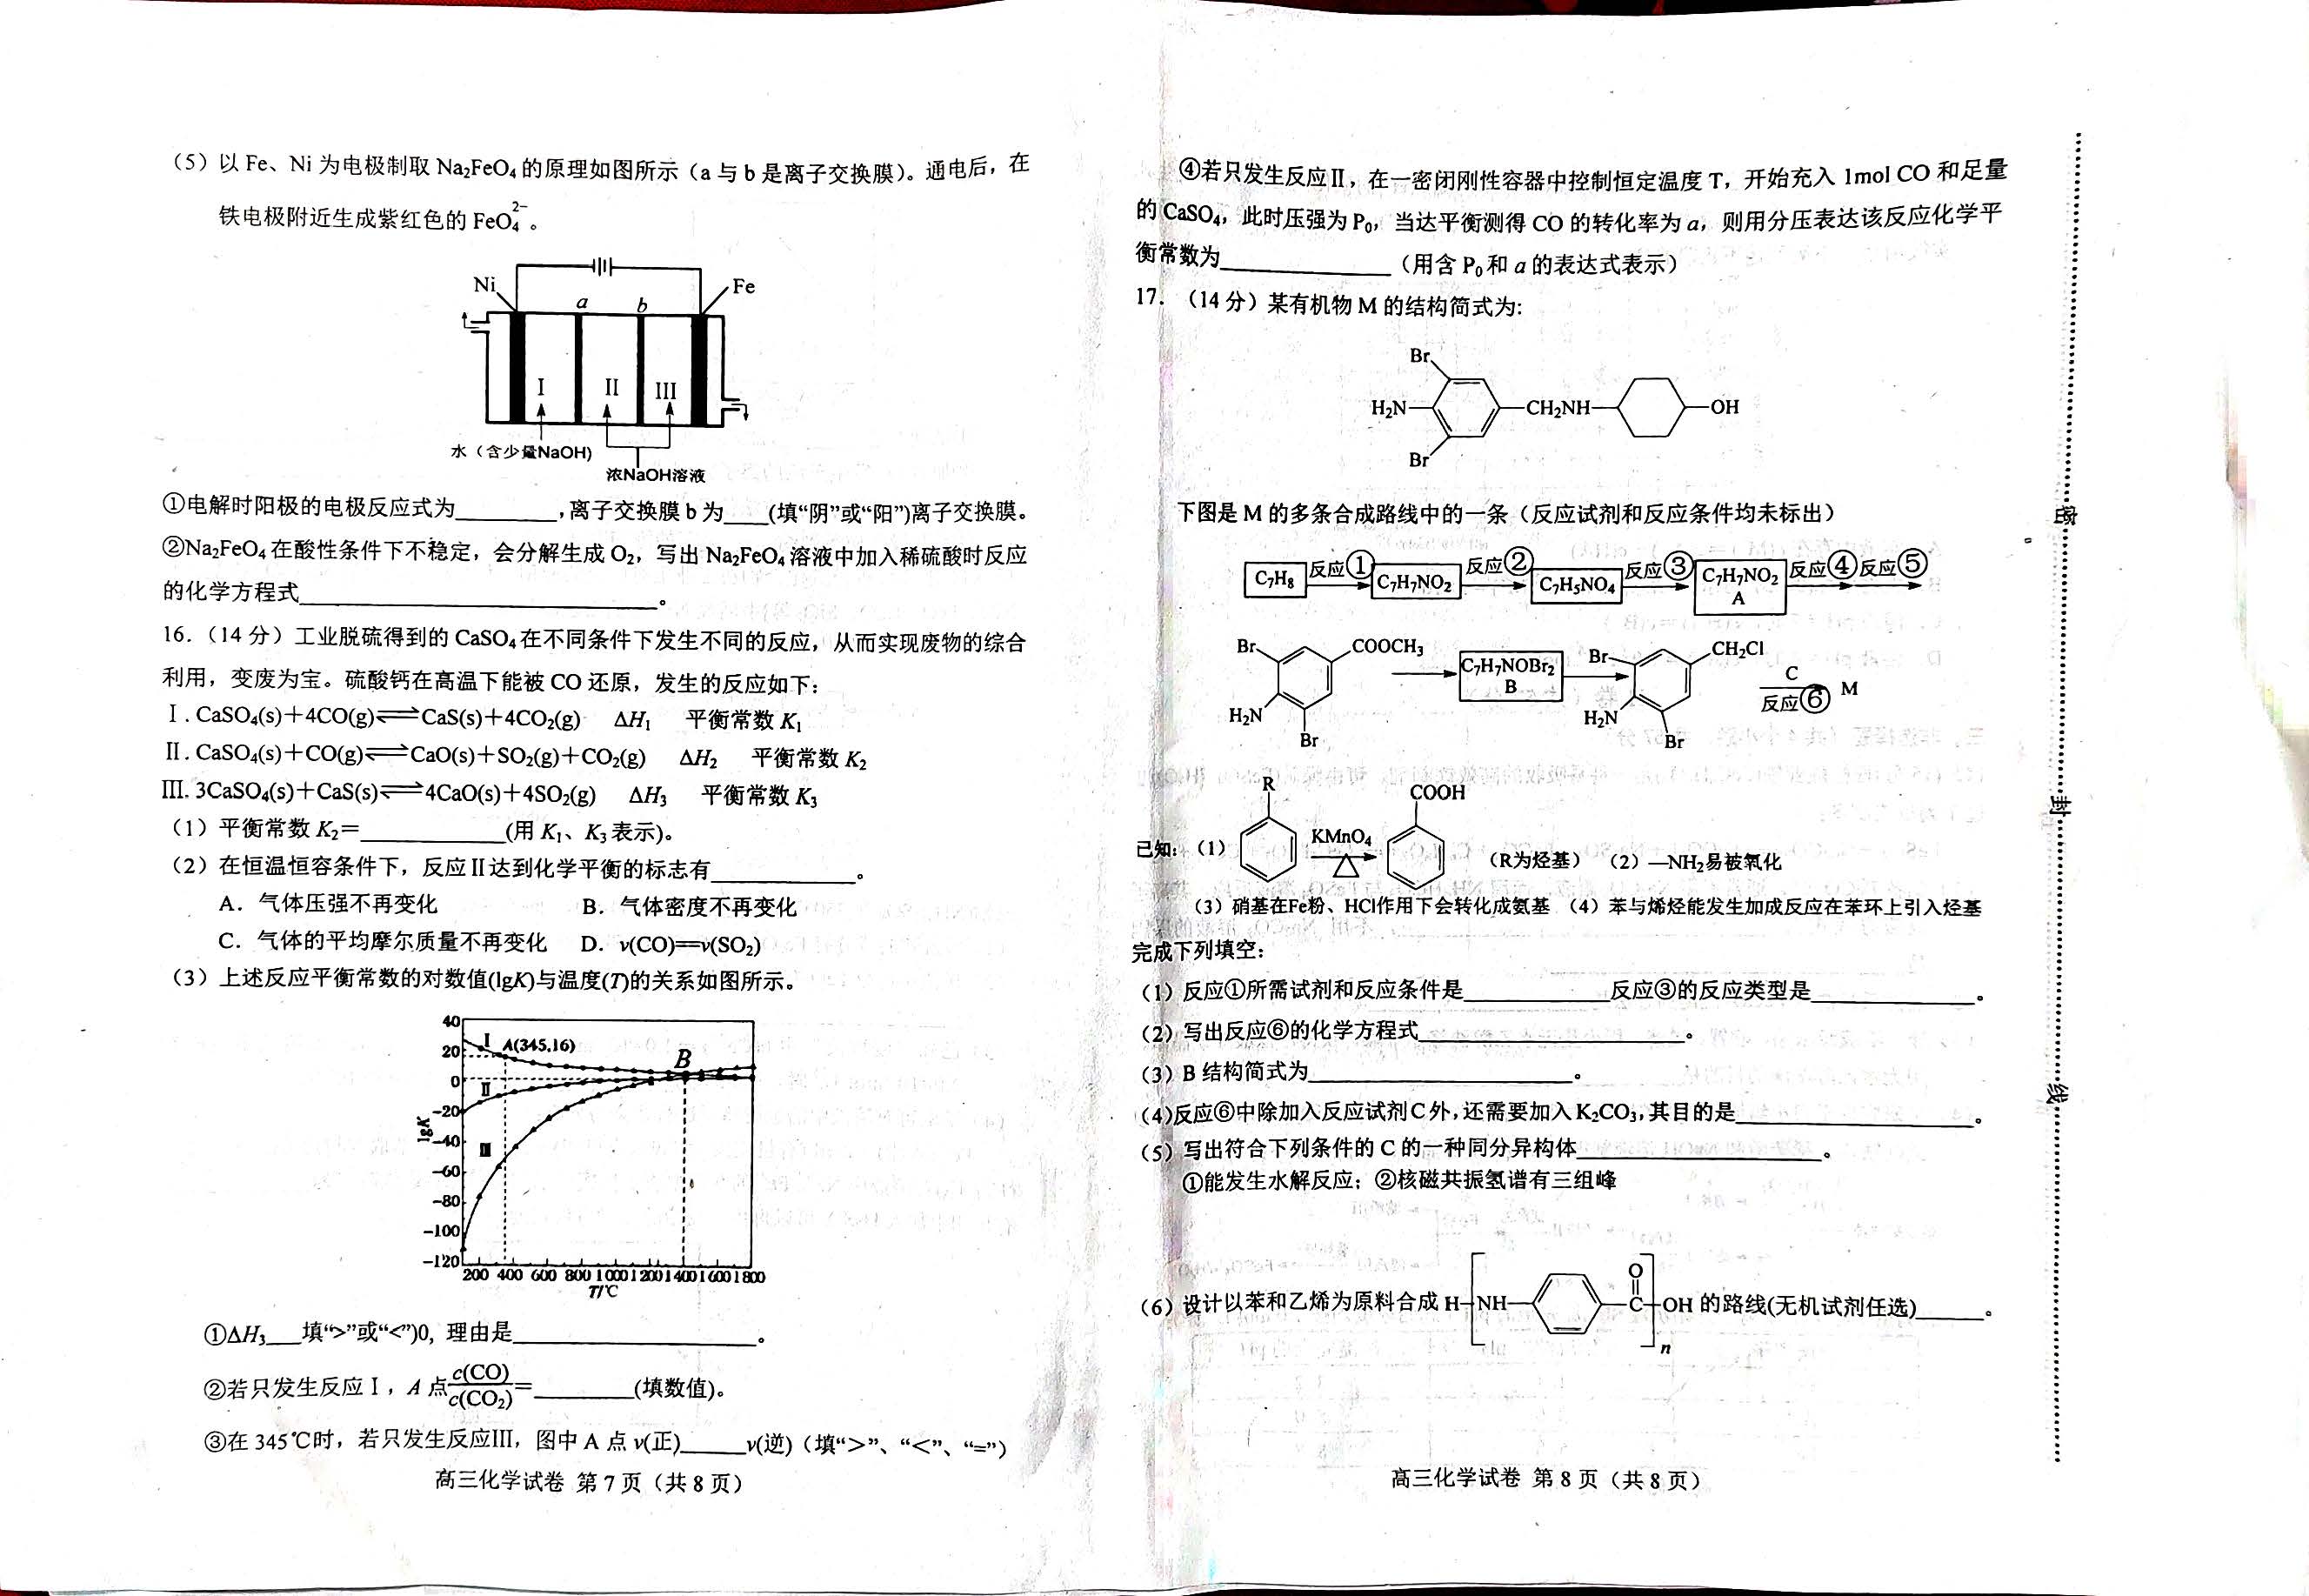 （5）以 Fe、Ni 为电极制取 Na₂FeO₄ 的原理如图所示（a 与 b 是离子交换膜）。通电后，在
铁电极附近生成紫红色的 FeO₄²⁻。
Ni
a
b
Fe
I
II
III
水（含少量NaOH)
浓NaOH溶液
①电解时阳极的电极反应式为________,离子交换膜 b 为____(填“阴”或“阳”)离子交换膜。
②Na₂FeO₄ 在酸性条件下不稳定，会分解生成 O₂，写出 Na₂FeO₄ 溶液中加入稀硫酸时反应
的化学方程式________________。
16.（14 分）工业脱硫得到的 CaSO₄ 在不同条件下发生不同的反应，从而实现废物的综合
利用，变废为宝。硫酸钙在高温下能被 CO 还原，发生的反应如下：
Ⅰ. CaSO₄(s)＋4CO(g)⇌CaS(s)＋4CO₂(g) ΔH₁ 平衡常数 K₁
Ⅱ. CaSO₄(s)＋CO(g)⇌CaO(s)＋SO₂(g)＋CO₂(g) ΔH₂ 平衡常数 K₂
Ⅲ. 3CaSO₄(s)＋CaS(s)⇌4CaO(s)＋4SO₂(g) ΔH₃ 平衡常数 K₃
（1）平衡常数 K₂＝__________(用 K₁、K₃ 表示)。
（2）在恒温恒容条件下，反应Ⅱ达到化学平衡的标志有__________。
A．气体压强不再变化 B．气体密度不再变化
C．气体的平均摩尔质量不再变化 D．v(CO)══v(SO₂)
（3）上述反应平衡常数的对数值(lgK)与温度(T)的关系如图所示。
40
20
0
−20
−40
−60
−80
−100
−120
lgK
I
A(345,16)
B
II
III
200 400 600 800 1 000 1 200 1 400 1 600 1 800
T/℃
①ΔH₃___填“>”或“<”)0, 理由是________________。
②若只发生反应Ⅰ，A 点 c(CO)/c(CO₂)=________(填数值)。
③在 345℃时，若只发生反应Ⅲ，图中 A 点 v(正)_____v(逆)（填“>”、“<”、“=”）
高三化学试卷 第 7 页（共 8 页）
④若只发生反应Ⅱ，在一密闭刚性容器中控制恒定温度 T，开始充入 1mol CO 和足量
的 CaSO₄，此时压强为 P₀，当达平衡测得 CO 的转化率为 a，则用分压表达该反应化学平
衡常数为____________（用含 P₀ 和 a 的表达式表示）
17.（14 分）某有机物 M 的结构简式为:
Br
H₂N
CH₂NH
OH
Br
下图是 M 的多条合成路线中的一条（反应试剂和反应条件均未标出）
C₇H₈ 反应① C₇H₇NO₂ 反应② C₇H₅NO₄ 反应③ C₇H₇NO₂ A 反应④ 反应⑤
Br COOCH₃ H₂N Br C₇H₇NOBr₂ B Br CH₂Cl H₂N Br C 反应⑥ M
已知：（1） R KMnO₄ △ COOH （R为烃基）（2）—NH₂易被氧化
（3）硝基在Fe粉、HCl作用下会转化成氨基 （4）苯与烯烃能发生加成反应在苯环上引入烃基
完成下列填空：
（1）反应①所需试剂和反应条件是__________反应③的反应类型是__________。
（2）写出反应⑥的化学方程式________________。
（3）B 结构简式为________________。
（4)反应⑥中除加入反应试剂 C 外,还需要加入 K₂CO₃,其目的是____________。
（5）写出符合下列条件的 C 的一种同分异构体______________。
①能发生水解反应；②核磁共振氢谱有三组峰
（6）设计以苯和乙烯为原料合成 H NH C O OH n 的路线(无机试剂任选)_____。
高三化学试卷 第 8 页（共 8 页）
密
封
线